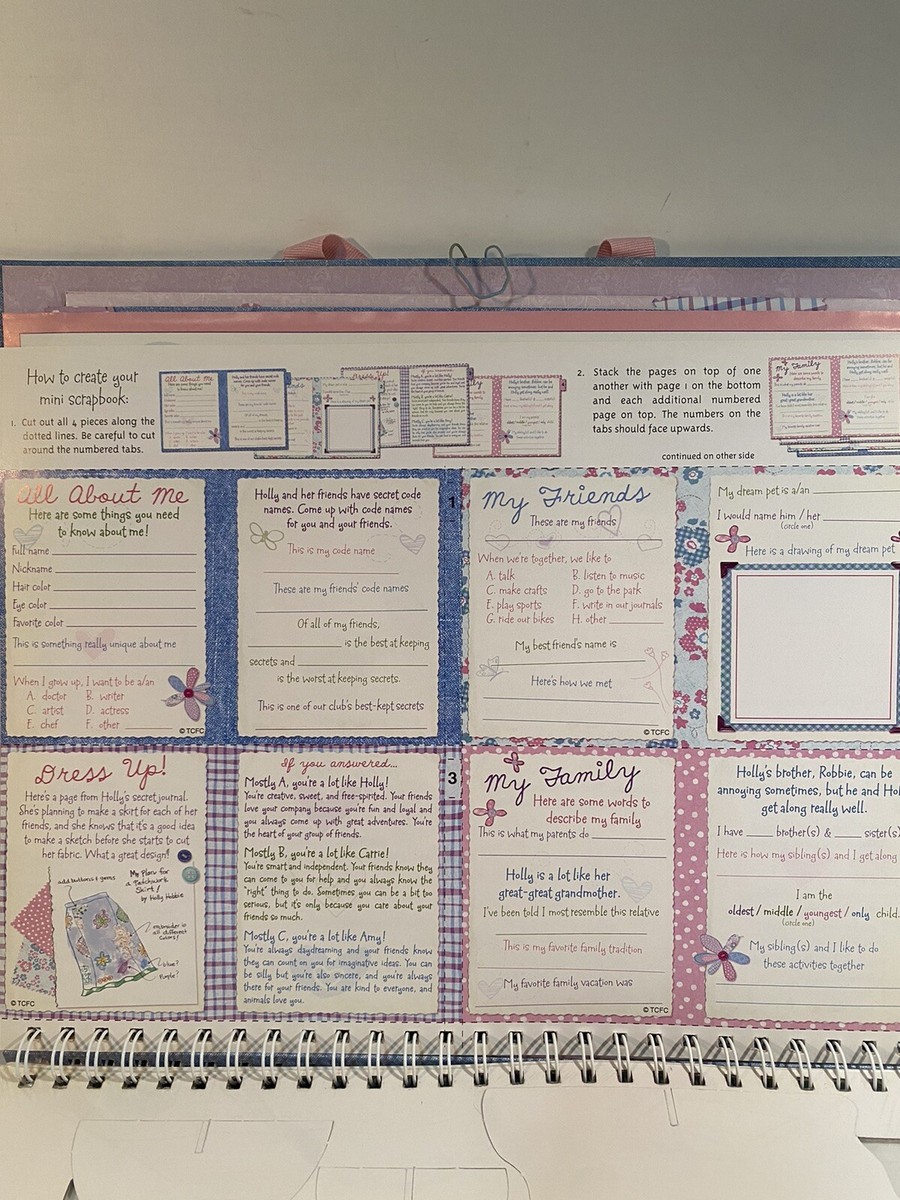 How to create your
mini scrapbook:
1. Cut out all 4 pieces along the
dotted lines. Be careful to cut
around the numbered tabs.
2. Stack the pages on top of one
another with page 1 on the bottom
and each additional numbered
page on top. The numbers on the
tabs should face upwards.
continued on other side
All About Me
Here are some things you need
to know about me!
Full name
Nickname
Hair color
Eye color
Favorite color
This is something really unique about me
When I grow up, I want to be a/an
A. doctor B. writer
C. artist D. actress
E. chef F. other
© TCFC
Holly and her friends have secret code
names. Come up with code names
for you and your friends.
This is my code name
These are my friends' code names
Of all of my friends,
is the best at keeping
secrets and
is the worst at keeping secrets.
This is one of our club's best-kept secrets
1
My Friends
These are my friends
When we're together, we like to
A. talk B. listen to music
C. make crafts D. go to the park
E. play sports F. write in our journals
G. ride our bikes H. other
My best friend's name is
Here's how we met
© TCFC
My dream pet is a/an
I would name him / her
(circle one)
Here is a drawing of my dream pet
Dress Up!
Here's a page from Holly's secret journal.
She's planning to make a skirt for each of her
friends, and she knows that it's a good idea
to make a sketch before she starts to cut
her fabric. What a great design!
add buttons & gems
My Plans for
a Patchwork
Skirt!
by Holly Hobbie
embroider in
all different
colors!
blue?
Purple?
© TCFC
If you answered...
Mostly A, you're a lot like Holly!
You're creative, sweet, and free-spirited. Your friends
love your company because you're fun and loyal and
you always come up with great adventures. You're
the heart of your group of friends.
Mostly B, you're a lot like Carrie!
You're smart and independent. Your friends know they
can come to you for help and you always know the
"right" thing to do. Sometimes you can be a bit too
serious, but it's only because you care about your
friends so much.
Mostly C, you're a lot like Amy!
You're always daydreaming and your friends know
they can count on you for imaginative ideas. You can
be silly but you're also sincere, and you're always
there for your friends. You are kind to everyone, and
animals love you.
3
My Family
Here are some words to
describe my family
This is what my parents do
Holly is a lot like her
great-great grandmother.
I've been told I most resemble this relative
This is my favorite family tradition
My favorite family vacation was
© TCFC
Holly's brother, Robbie, can be
annoying sometimes, but he and Hol
get along really well.
I have brother(s) & sister(s)
Here is how my sibling(s) and I get along
I am the
oldest / middle / youngest / only child.
(circle one)
My sibling(s) and I like to do
these activities together